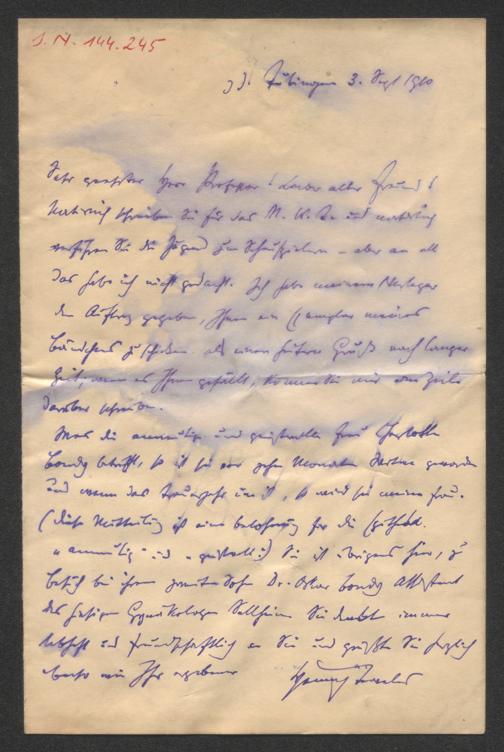 I. N. 144.245
Tübingen 3. Sept 1910
Sehr geehrter Herr Professor! Lieber alter Freund!
Natürlich schreiben Sie für das N. W. T. und natürlich
verführen Sie die Jugend zum Schauspielern – aber an all
das habe ich nicht gedacht. Ich habe meinem Verleger
den Auftrag gegeben, Ihnen ein Exemplar meines
Bändchens zu schicken als einen Gruß nach langer
Zeit, wenn es Ihnen gefällt, können Sie mir eine Zeile
darüber schreiben.
Was die anmutige und geistvolle Frau Charlotte
Bondy betrifft, so ist sie vor zehn Monaten Witwe geworden
und wenn das Trauerjahr um ist, so wird sie meine Frau.
(Diese Mitteilung ist eine Belohnung für die
"anmutig" und "geistvoll") Sie ist übrigens hier, zu
Besuch bei ihrem zweiten Sohn Dr. Oskar Bondy Assistent
des hiesigen Gynäkologen Sellheim Sie denkt immer
lebhaft und freundschaftlich an Sie und grüßt Sie herzlich
ebenso wie Ihr ergebener